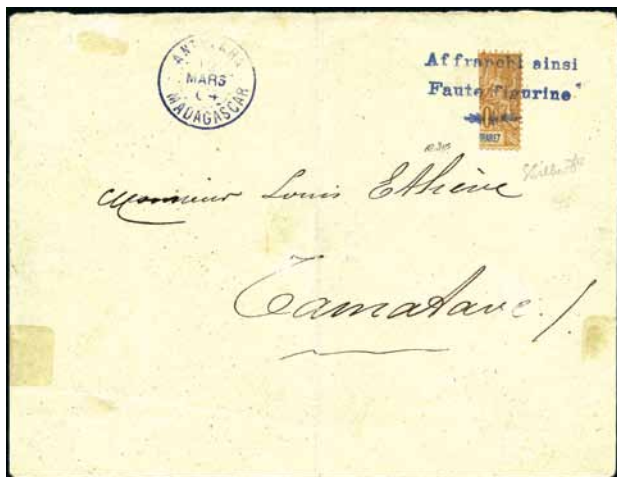 MARS
MADAGASCAR
Affranchi ainsi
Faute figurine
Monsieur Louis Ethève
Tamatave /.